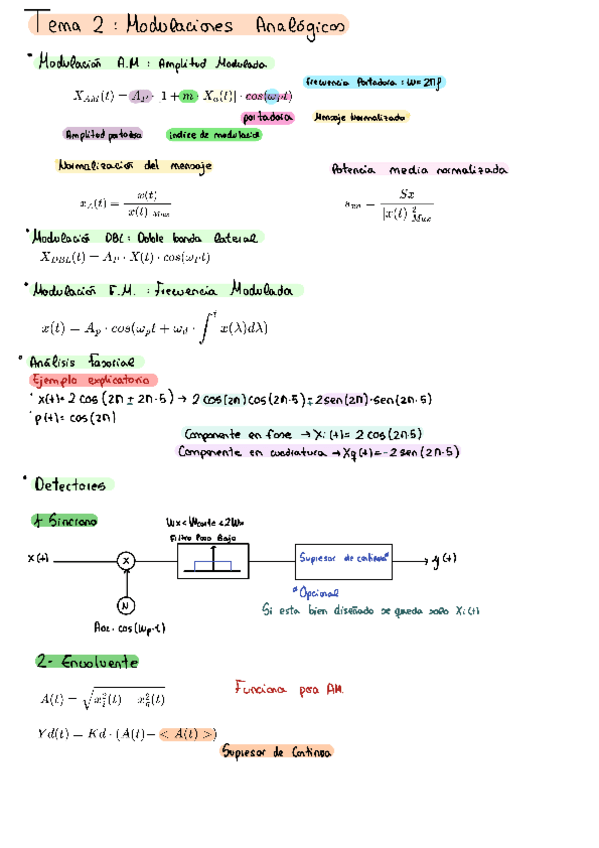 Tema 2 : Modulaciones Analógicas
Modulación A.M : Amplitud Modulada
Frecuencia Portadora : ω= 2πf
X_AM(t) = A_P · 1 + m · X_n(t)| · cos(ω_p t)
portadora Mensaje Normalizado
Amplitud portadora índice de modulación
Normalización del mensaje Potencia media normalizada
x_n(t) = x(t) / x(t) Max
s_xn = Sx / |x(t) ²Max
Modulación DBL: Doble banda lateral
X_DBL(t) = A_P · X(t) · cos(ω_P t)
Modulación F.M. : Frecuencia Modulada
x(t) = A_p · cos(ω_p t + ω_d · ∫^t x(λ)dλ)
Análisis Fasorial
Ejemplo explicatorio
x(t)= 2 cos (2π ± 2π·5) → 2 cos(2π) cos(2π·5) ± 2 sen(2π)·sen(2π·5)
p(t)= cos(2π)
Componente en fase → Xi(t)= 2 cos(2π·5)
Componente en cuadratura → Xq(t)= -2 sen(2π·5)
Detectores
1 Sincrono
Wx < Wcorte < 2W
Filtro Paso Bajo
X(t) x Supresor de continua* y(t)
*Opcional
N Si esta bien diseñado se queda solo Xi(t)
A_OL · cos(ω_p·t)
2- Envolvente
A(t) = √x_i²(t) x_q²(t) Funciona para AM
Yd(t) = Kd · (A(t)− < A(t) >)
Supresor de Continua